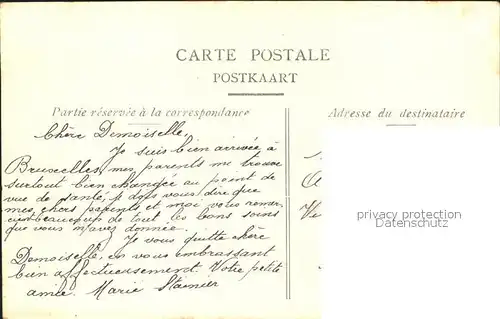 CARTE POSTALE
POSTKAART
Partie réservée à la correspondance
Adresse du destinataire
Chère Demoiselle,
Je suis bien arrivée à
Bruxelles, mes parents me trouve
surtout bien changée au point de
vue de santé, je dois vous dire que
mes chers parents et moi vous remer
cions beaucoup de tout les bons soins
que vous m'avez donnée.
Je vous quitte chère
Demoiselle, en vous embrassant
bien affectueusement. Votre petite
amie. Marie Stainier
privacy protection
Datenschutz